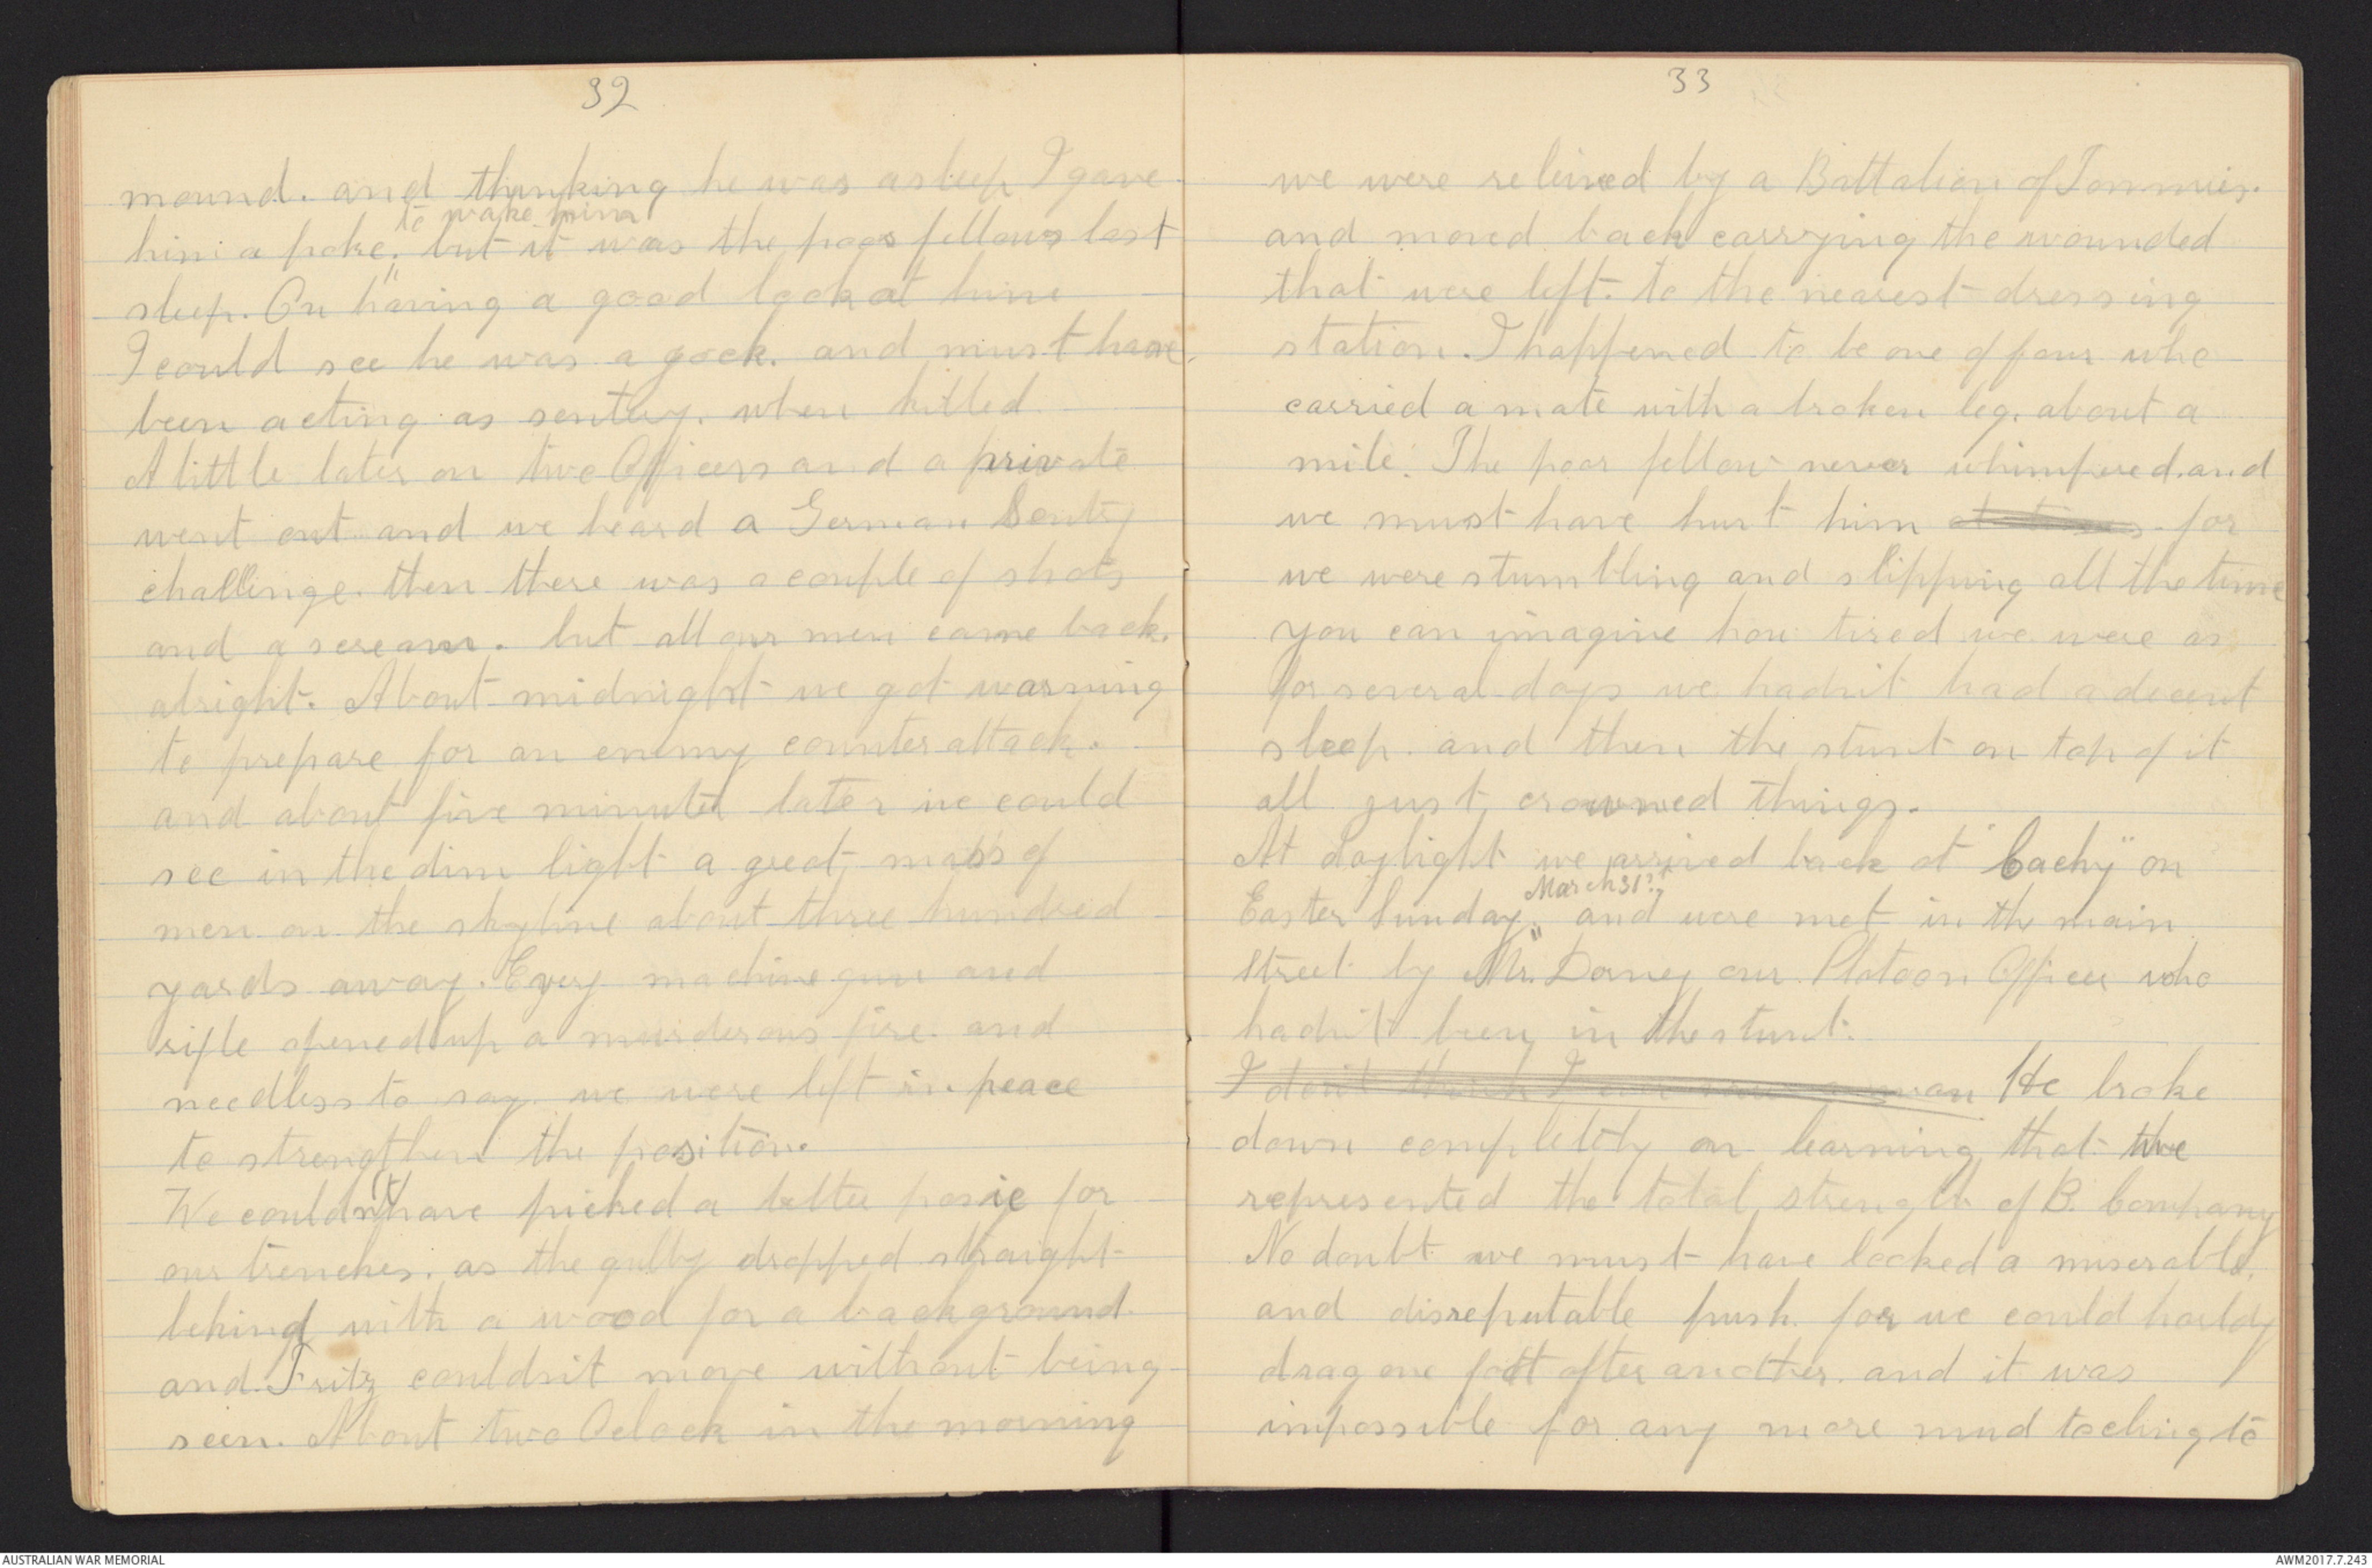 32
mound. and thinking he was asleep I gave
to wake him
him a poke, but it was the poor fellows last
sleep. On having a good look at him
I could see he was a jock. and must have
been acting as sentry. when killed
A little later on two Officers and a private
went out and we heard a German Sentry
challenge. then there was a couple of shots
and a scream. but all our men came back.
alright. About midnight we got warning
to prepare for an enemy counter attack.
and about five minutes later we could
see in the dim light a great mass of
men on the skyline about three hundred
yards away. Every machine gun and
rifle opened up a murderous fire. and
needless to say we were left in peace
to strengthen the position.
We couldn't have picked a better posie for
our trenches. as the gully dropped straight
behind with a wood for a background.
and Fritz couldn't move without being
seen. About two Oclock in the morning
33
we were releived by a Battalion of Tommies.
and moved back carrying the wounded
that were left. to the nearest dressing
station. I happened to be one of four who
carried a mate with a broken leg. about a
mile. The poor fellow never whimpered. and
we must have hurt him at times for
we were stumbling and slipping all the time
you can imagine how tired we were as
for several days we hadn't had a decent
sleep. and then the stunt on top of it
all just crowned things.
At daylight we arrived back at "Cachy" on
March 31st
Easter Sunday, and were met in the main
street by Mr. Dorney our Platoon Officer who
hadn't been in the stunt.
I don't think I ever saw a man He broke
down completely on learning that we
represented the total strength of B. Company
No doubt we must have looked a miserable,
and disreputable push. for we could hardly
drag one foot after another. and it was
impossible for any more mud to cling to
AUSTRALIAN WAR MEMORIAL
AWM2017.7.243